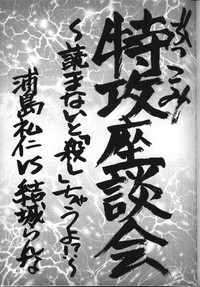 特攻座談会
ぶっこみ
〜読まないと「殺し」ちゃうよ!?〜
浦島礼仁VS結城らんな